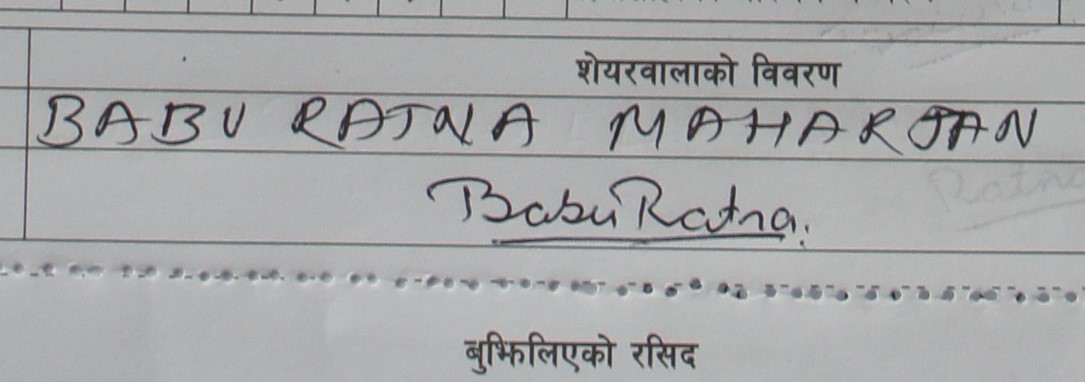 शेयरवालाको विवरण
BABU RATNA MAHARJAN
Babu Ratna.
बुझिलिएको रसिद